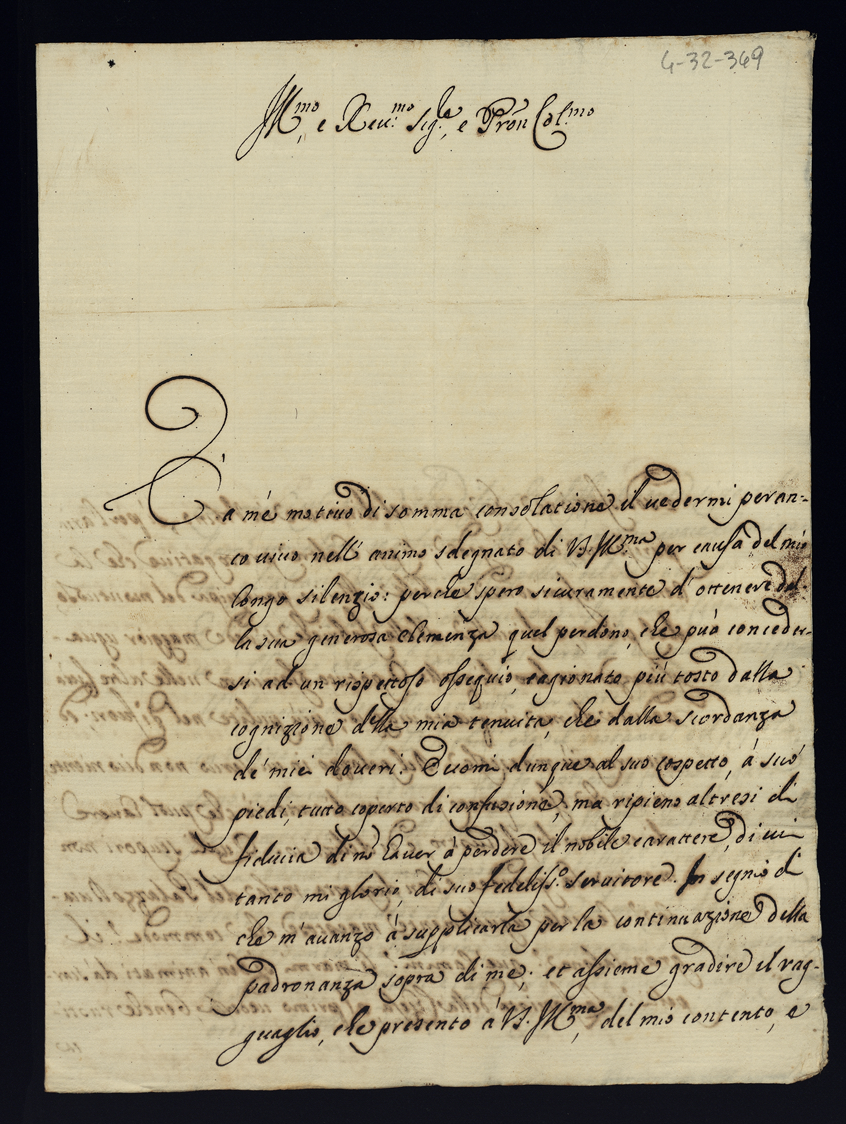 4-32-369
Ill.mo, e Reu.mo Sig.re, e Pron Col.mo
È a mé motiuo di somma consolatione il uedermi per an-
co uiuo nell' animo sdegnato di V.S. Ill.ma per causa del mio
longo silenzio: perche spero sicuramente d' ottenere dal-
la sua generosa clemenza quel perdono, che può conceder-
si ad un rispettoso ossequio, cagionato più tosto dalla
cognizione d'lla mia tenuità, che dalla scordanza
de' miei doueri. Euomi dunque al suo cospetto, à suoi
piedi, tutto coperto di confusione, ma ripieno altresi di
fiducia di nõ hauer à perdere il nobile carattere, di cui
tanto mi glorio, di suo fedeliss.o seruitore. In segno di
che m' auanzo à supplicarla per la continuazione della
padronanza sopra di me; et assieme gradire il rag-
guaglio, che presento à V.S. Ill.ma, del mio contento, e